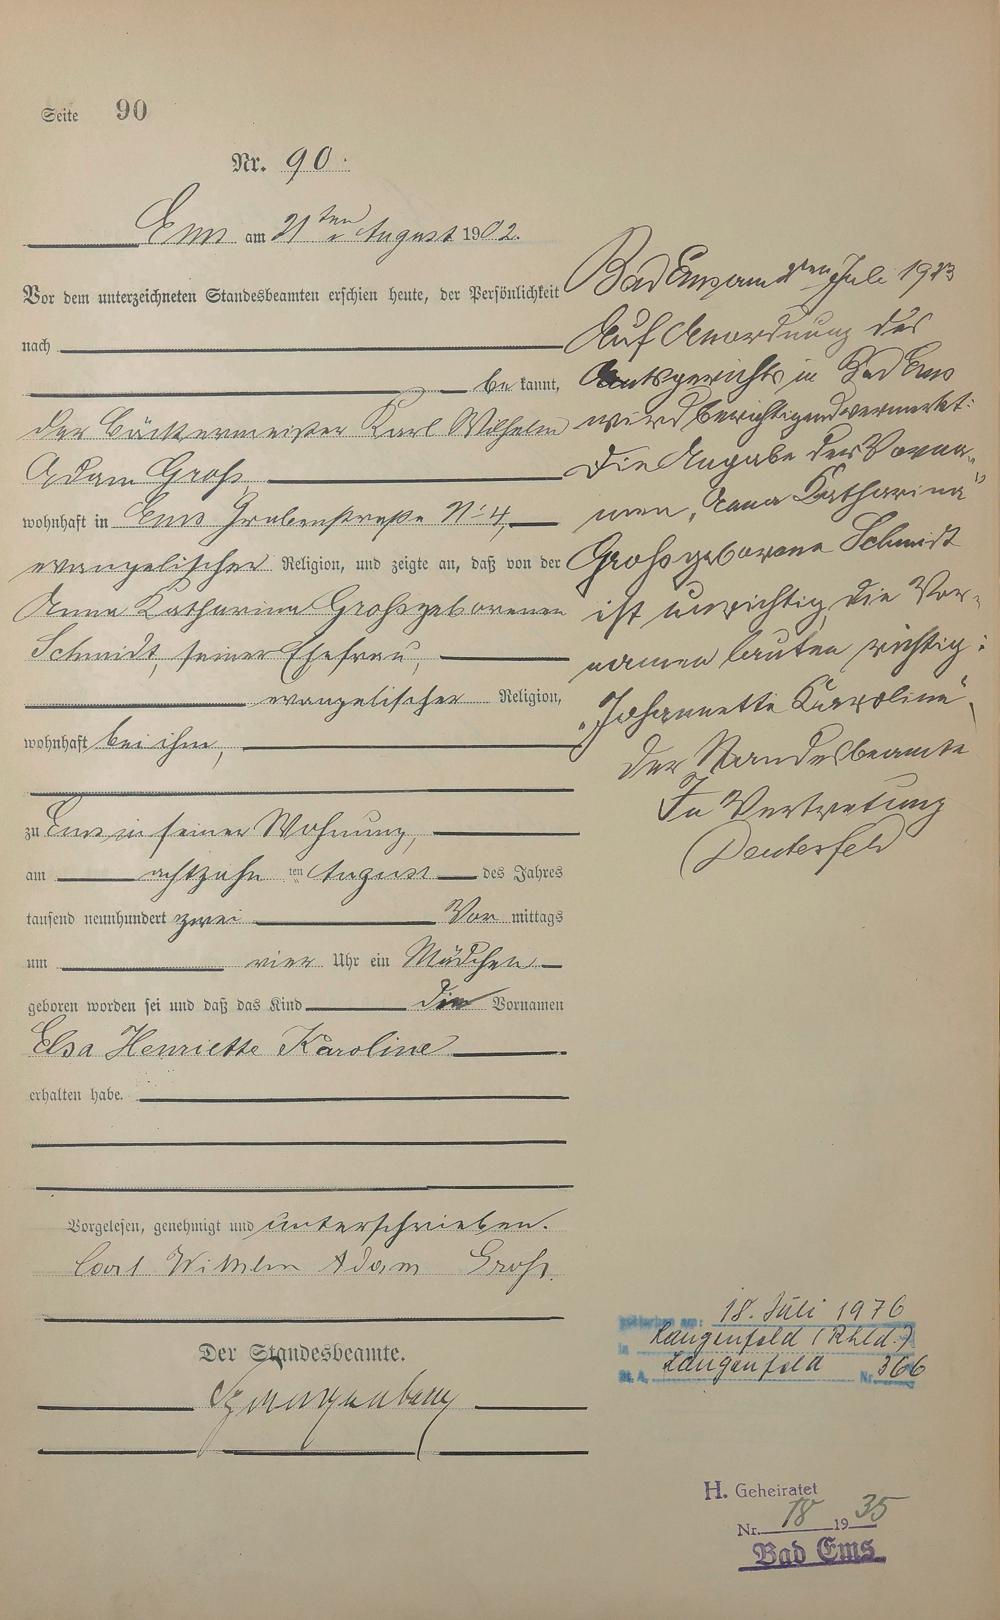 Seite 90
Nr. 90.
Ems am 21ten August 1902.
Vor dem unterzeichneten Standesbeamten erschien heute, der Persönlichkeit
nach
be kannt,
der Bäckermeister Karl Wilhelm
Adam Groß,
wohnhaft in Ems Grabenstraße No 4,
evangelischer Religion, und zeigte an, daß von der
Anna Katharina Groß geborenen
Schmidt, seiner Ehefrau,
evangelischer Religion,
wohnhaft bei ihm,
zu Ems in seiner Wohnung,
am achtzehn ten August des Jahres
tausend neunhundert zwei Vor mittags
um vier Uhr ein Mädchen
geboren worden sei und daß das Kind die Vornamen
Elsa Henriette Karoline
erhalten habe.
Vorgelesen, genehmigt und unterschrieben.
Carl Wilhelm Adam Groß.
Der Standesbeamte.
Bad Ems am ten Juli 1923
Auf Anordnung des
Amtsgerichts in Bad Ems
wird berichtigend vermerkt:
Die Angabe der Vorna-
men „Anna Katharina"
Groß geborene Schmidt
ist unrichtig, die Vor-
namen lauten richtig:
„Johannette Karoline".
Der Standesbeamte
In Vertretung
Deuterfeld
gestorben am: 18. Juli 1976
in Langenfeld (Rhld.)
St. A. Langenfeld Nr. 366
H. Geheiratet
Nr. 18 1935
Bad Ems